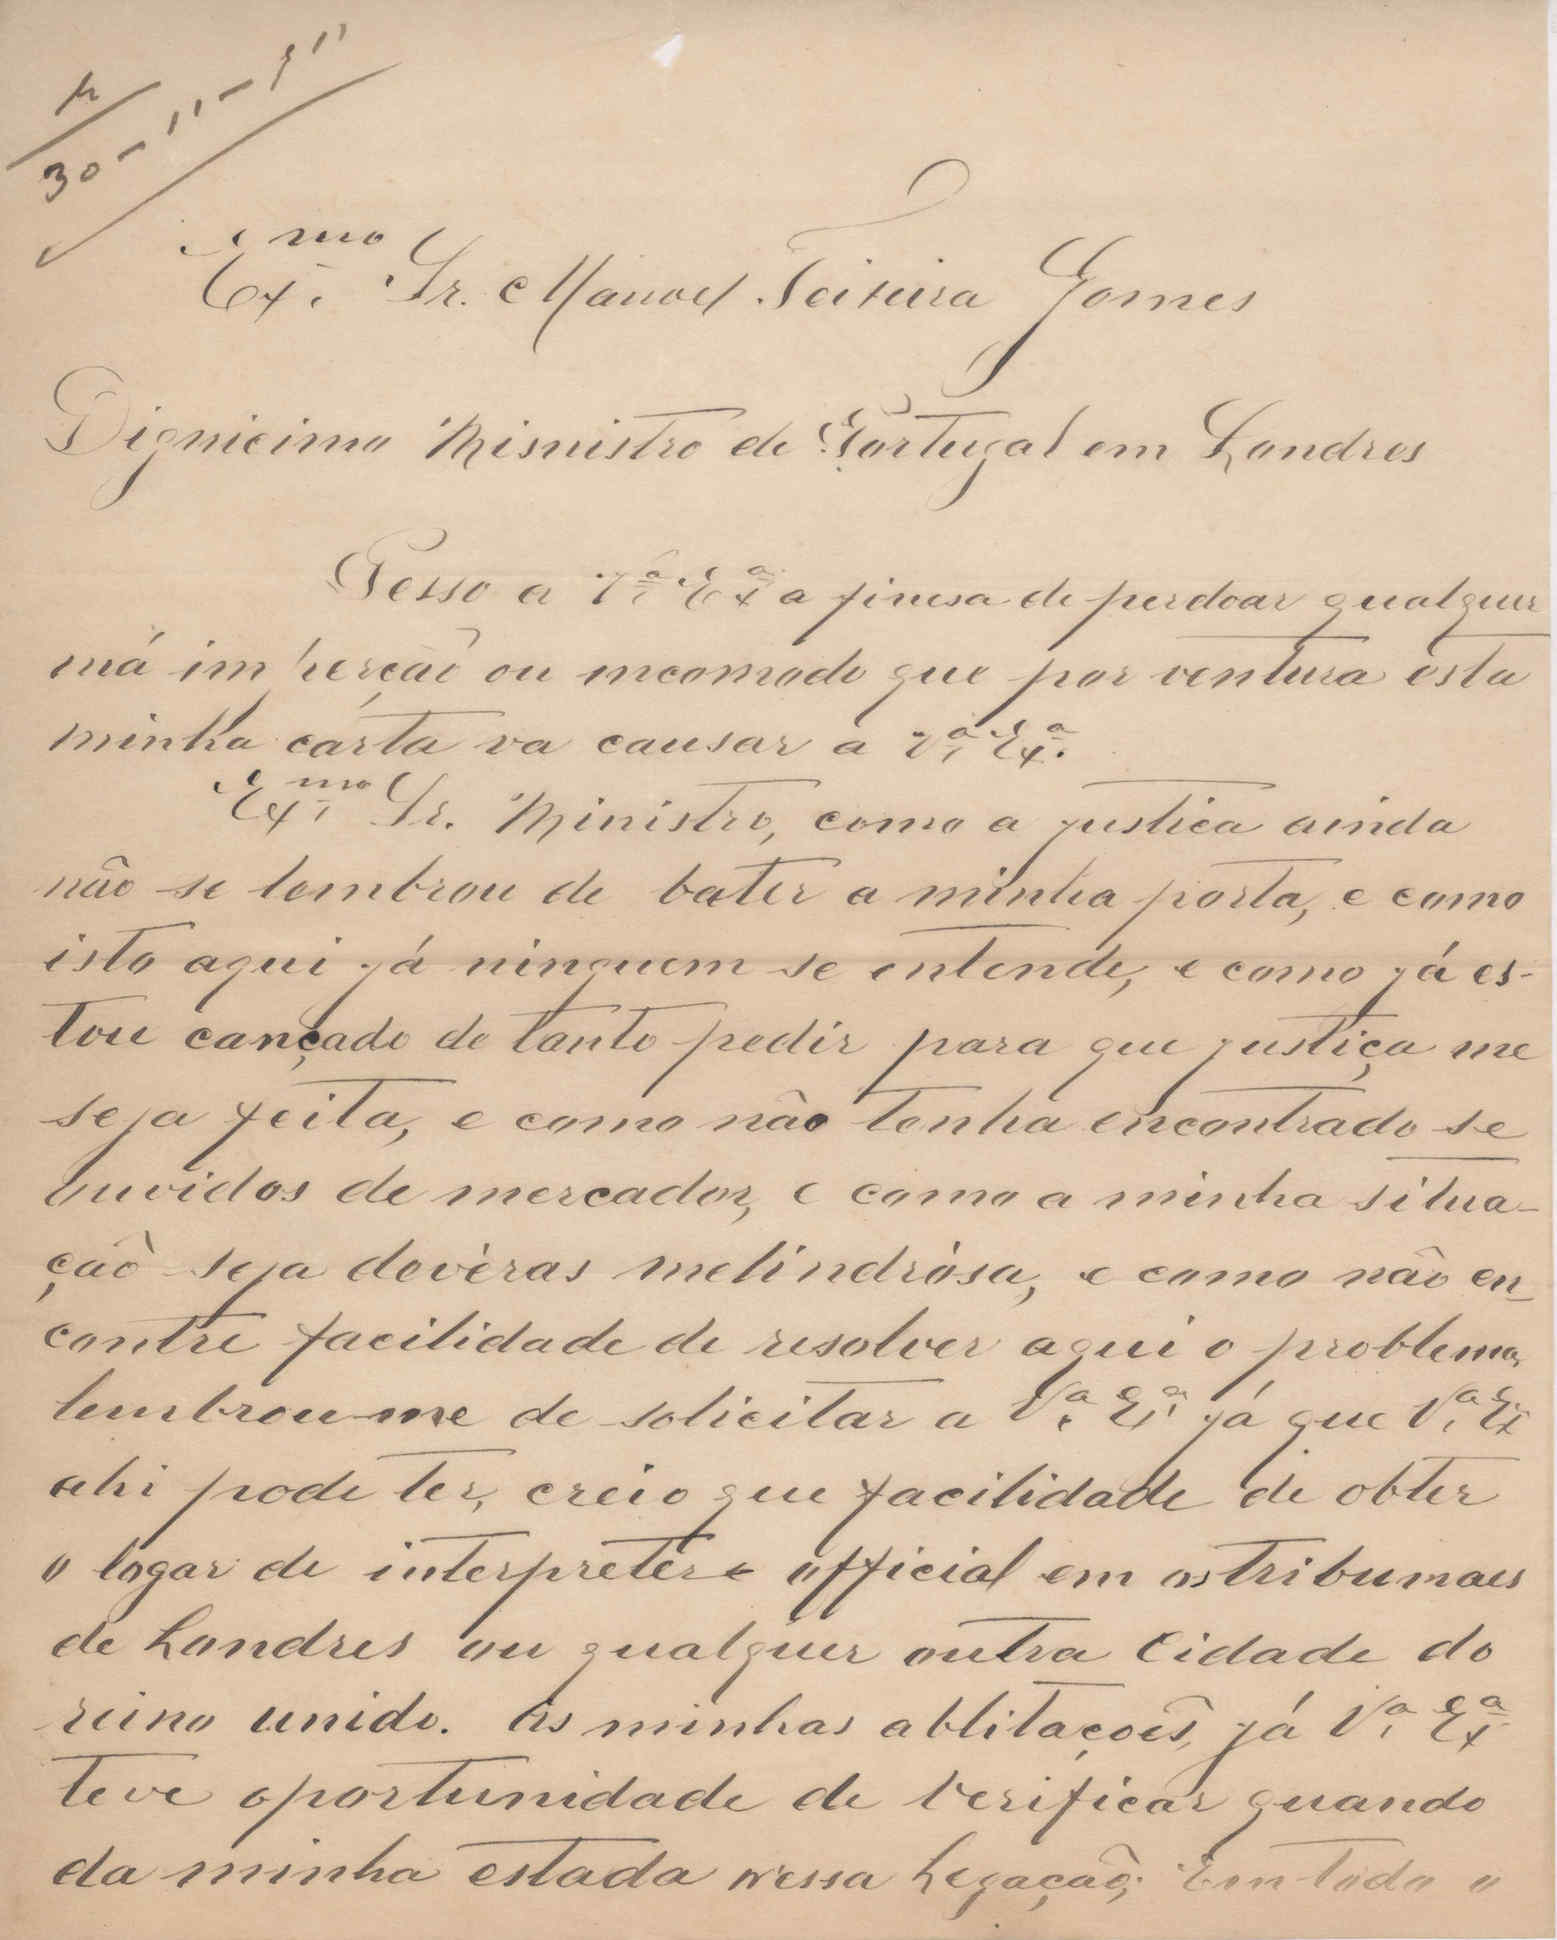 30-11-911
Ex.mo Sr. Manoel Teixeira Gomes
Dignicimo Misnistro de Portugal em Londres
Pesso a V.ª Exª a finesa de perdoar qualquer
má imperção ou incomodo que por ventura esta
minha carta va causar a V.ª Ex.ª
Ex.mo Sr. Ministro, como a justica ainda
não se lembrou de bater a minha porta, e como
isto aqui já ninguem se entende, e como já es-
tou cançado de tanto pedir para que justiça me
seja feita, e como não tenha encontrado se
ouvidos de mercador, e como a minha situa-
ção seja devéras melindrósa, e como não en-
contre facilidade de resolver aqui o problema,
lembrou-me de solicitar a V.ª Exª já que V.ª Exª
ahi pode ter, creio que facilidade de obter
o logar de interpretere official em os tribumaes
de Londres ou qualquer outra Cidade do
reino unido. As minhas ablitações, já V.ª Exª
teve oportunidade de Verificar quando
da minha estada nessa Legação; Em todo o